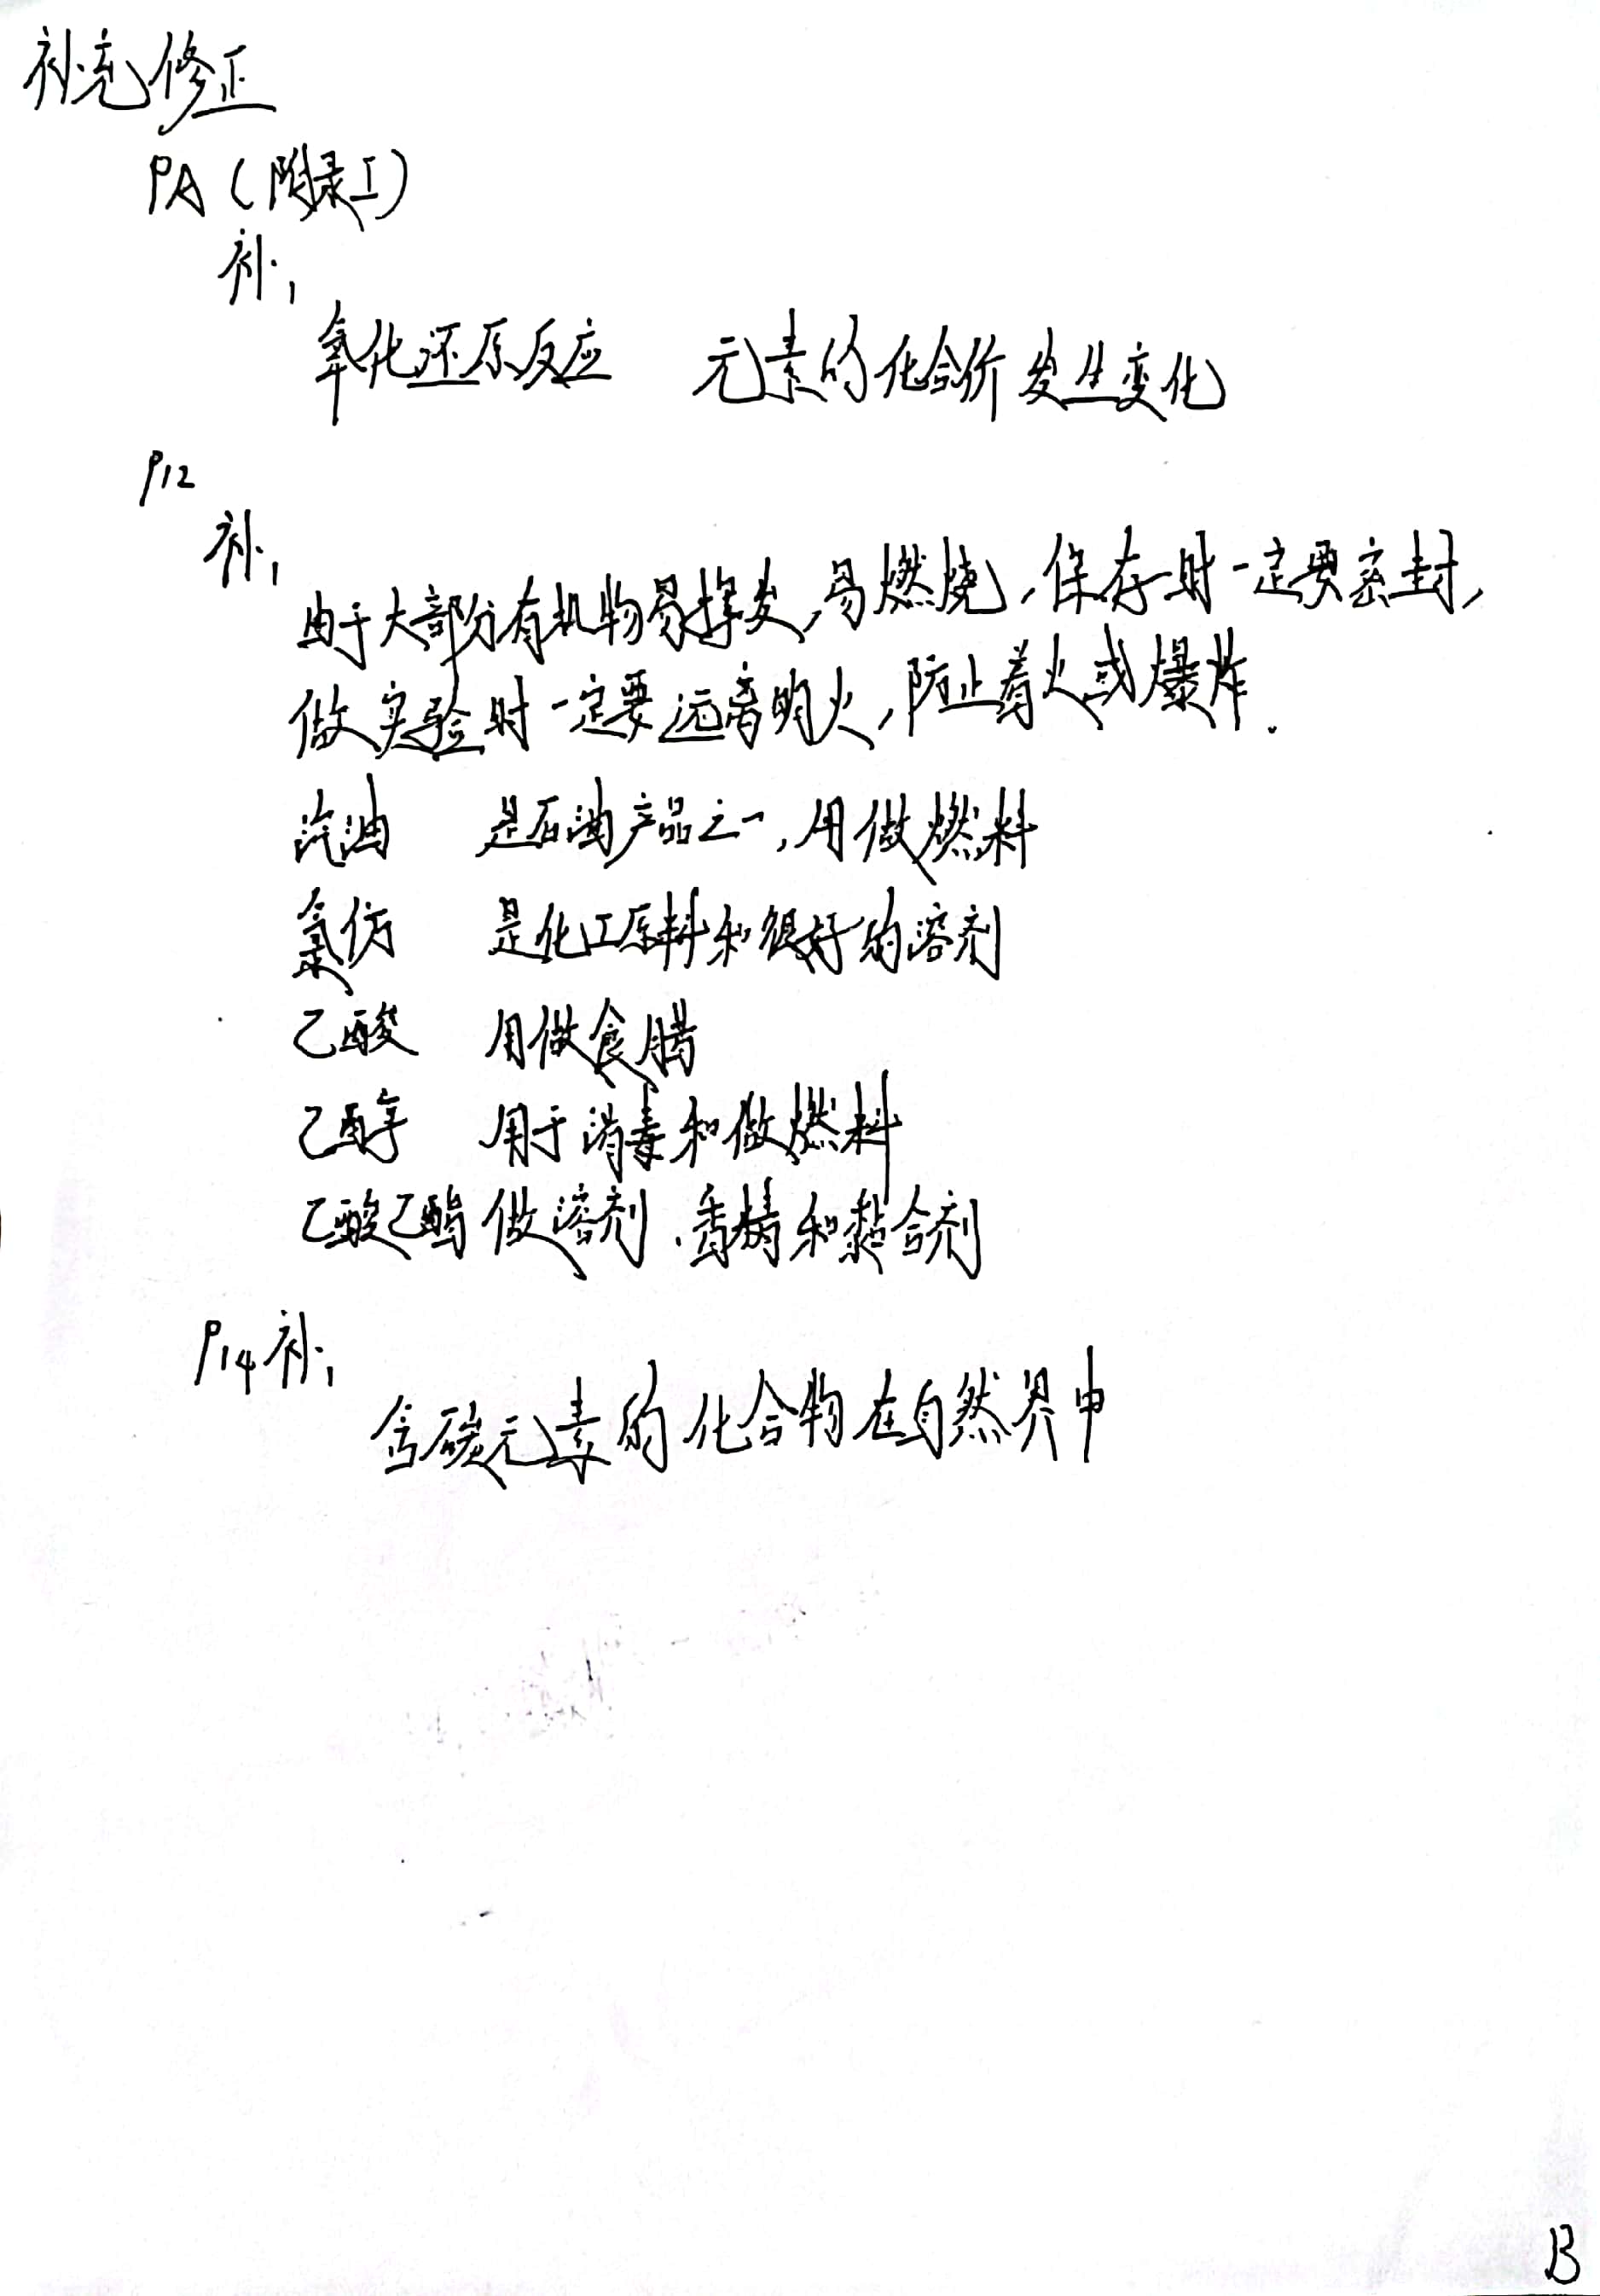 补充修正
PA（附录I）
补：
氧化还原反应 元素的化合价发生变化
P12
补：
由于大部分有机物易挥发，易燃烧，保存时一定要密封，
做实验时一定要远离明火，防止着火或爆炸.
汽油 是石油产品之一，用做燃料
氯仿 是化工原料和很好的溶剂
乙酸 用做食腊
乙醇 用于消毒和做燃料
乙酸乙酯 做溶剂、香精和黏合剂
P14 补：
含碳元素的化合物在自然界中
B